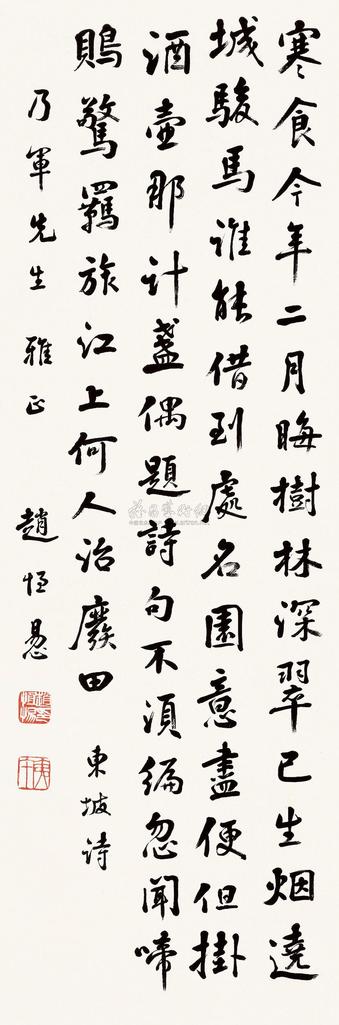 寒食今年二月晦樹林深翠已生烟遶
城駿馬誰能借到處名園意盡便但掛
酒壺那計盞偶題詩句不須編忽聞啼
鵙驚羈旅江上何人治廢田 東坡詩
乃軍先生 雅正 趙恒惖